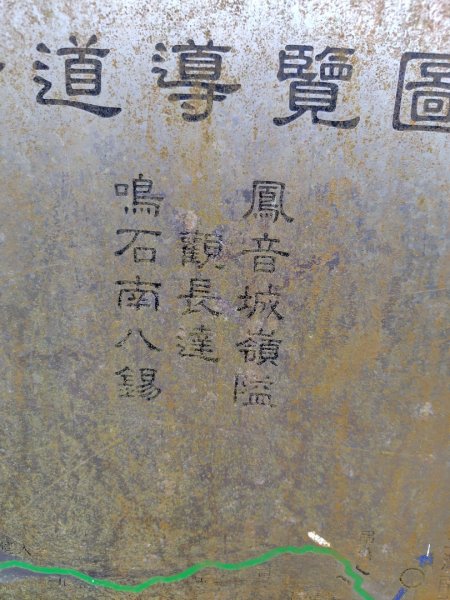 道導覽圖
鳴鳳
石觀音
南長城
八達嶺
錫隘